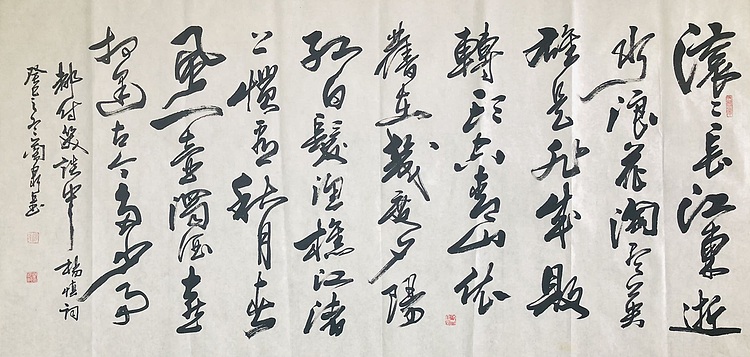 滚滚長江東逝
水浪花淘尽英
雄是非成敗
轉头空青山依
舊在幾度夕陽
红白髮渔樵江渚
上慣看秋月春
風一壶濁酒喜
相逢古今多少事
都付笑談中 楊慎词
癸巳之冬